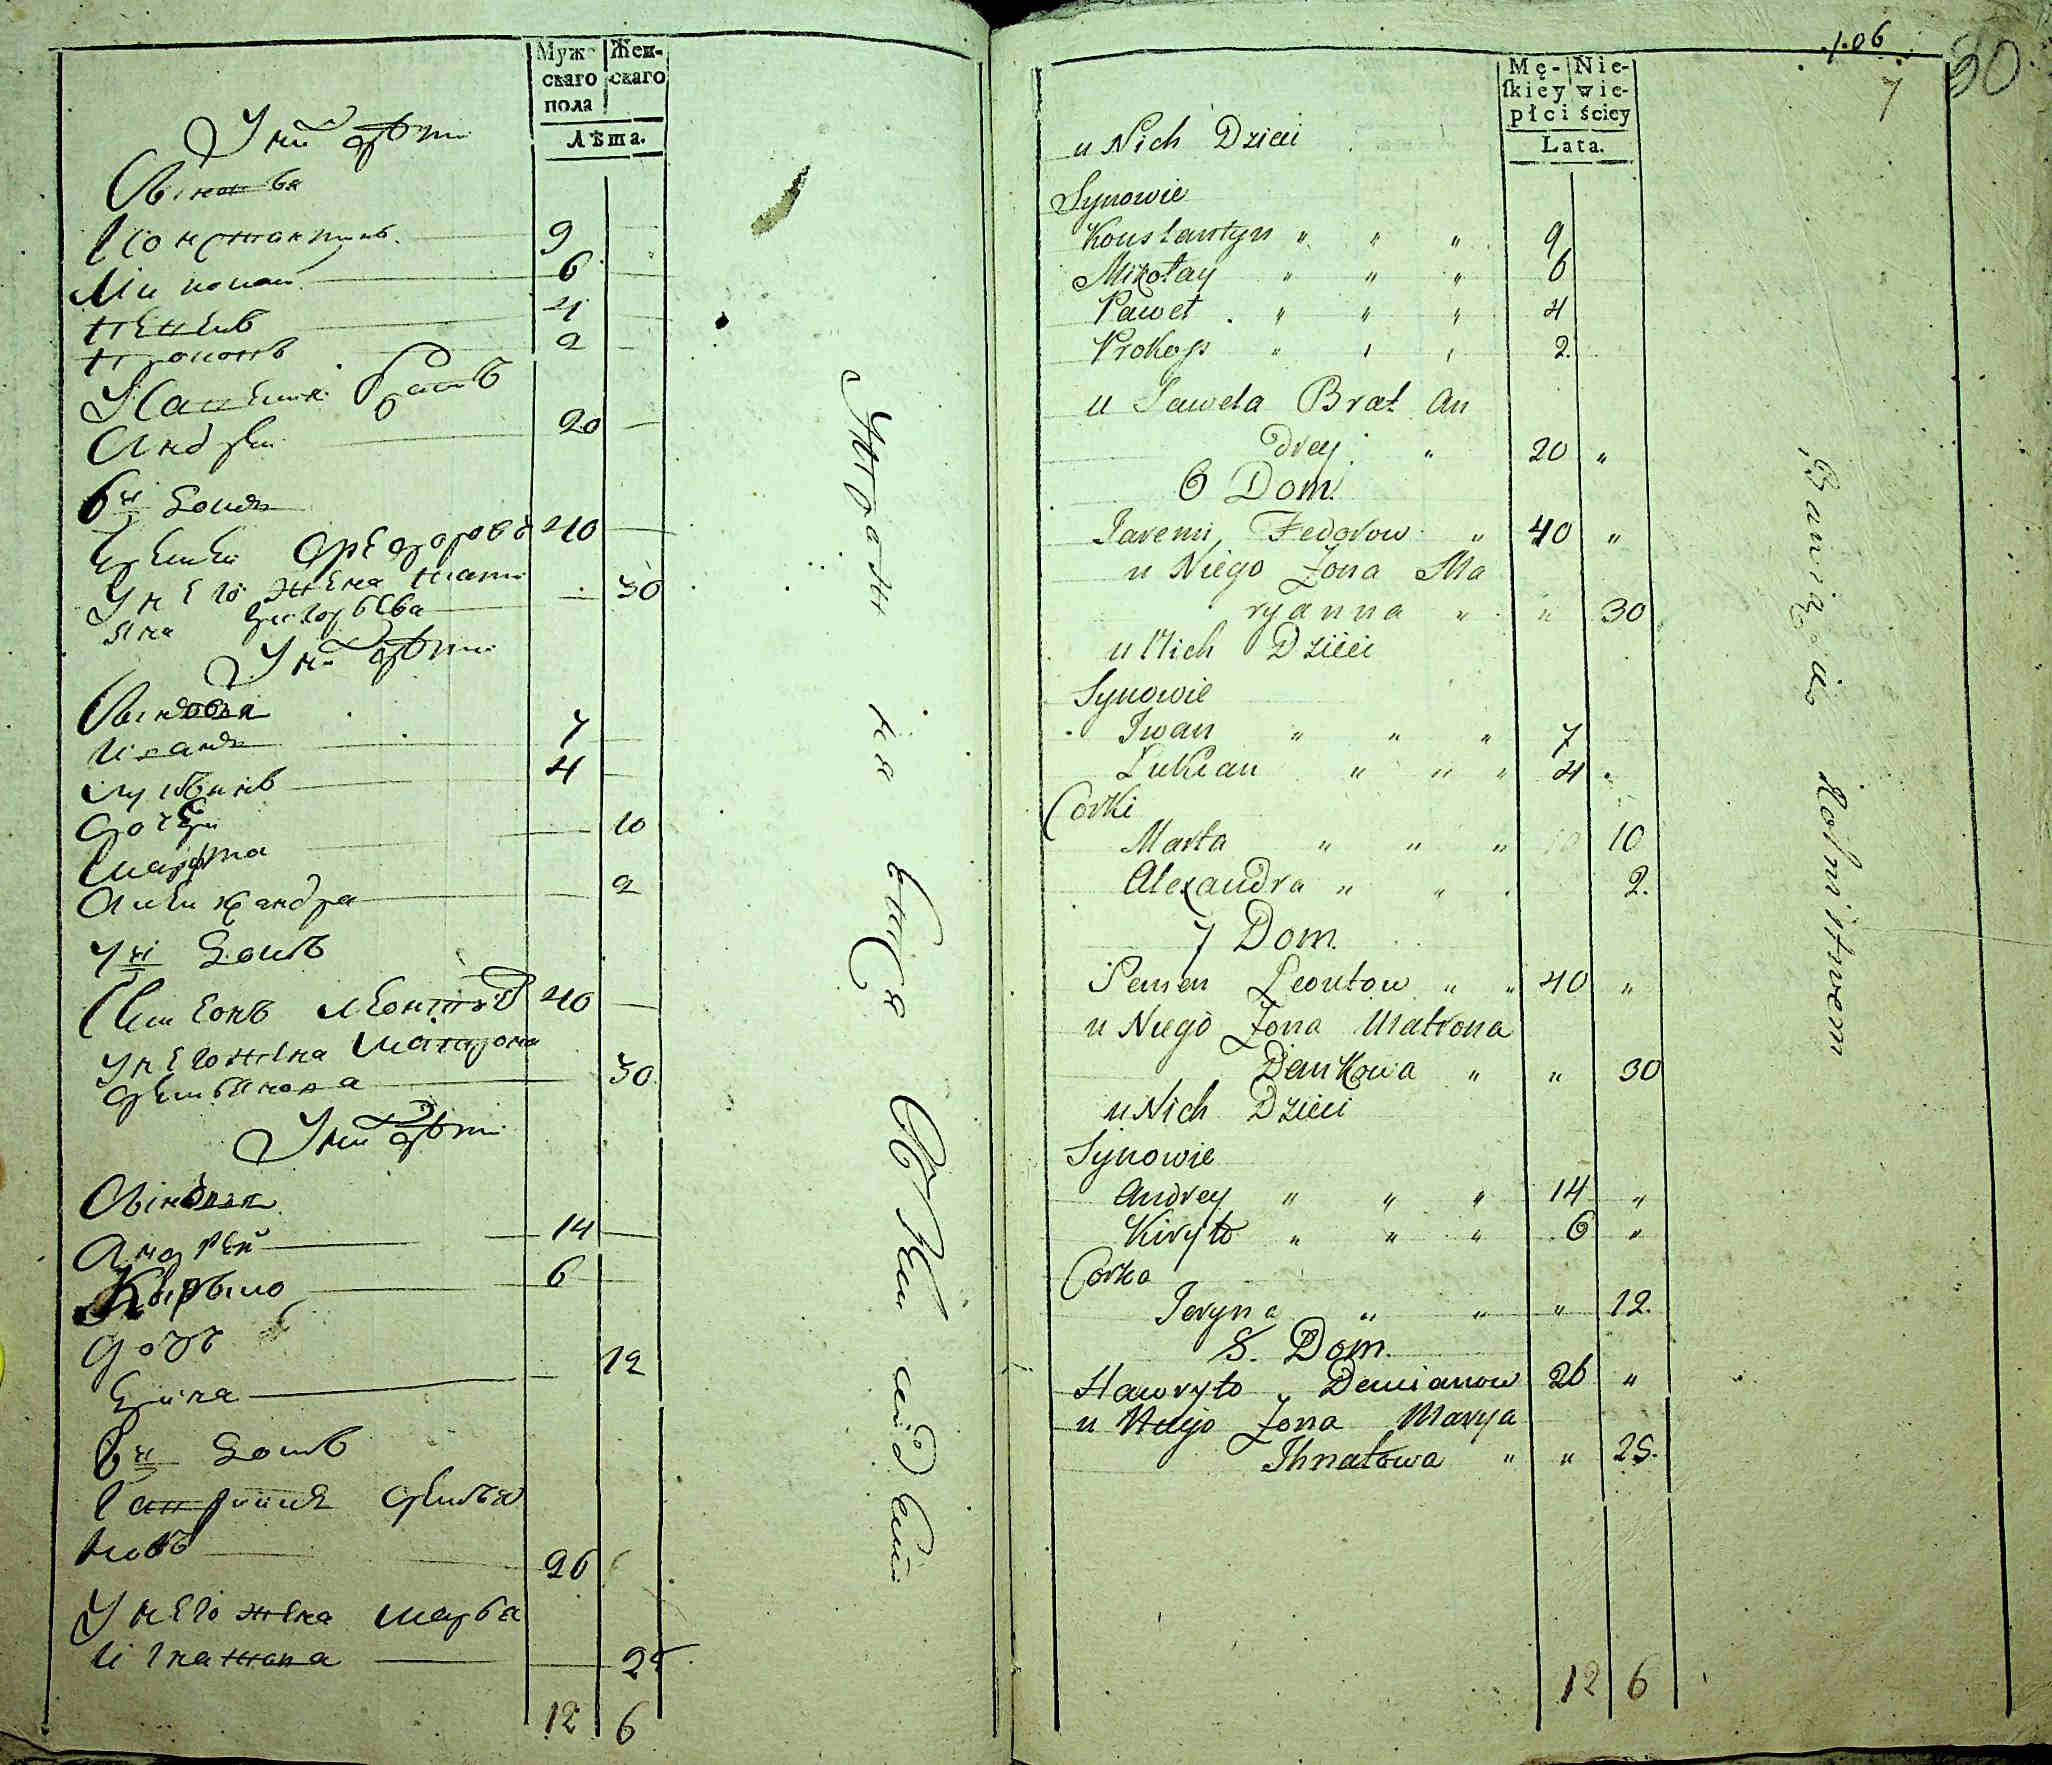 Муж-
скаго
пола
Жен-
скаго
Лѣта.
У них дѣти
Синовья
Константинъ 9
Николай 6
Павелъ 4
Прокопъ 2
У Павела братъ
Андрей 20
6й Домъ
Еремей Федоровъ 40
У него жена Мари
яна 30
У них дѣти
Синовья
Иванъ 7
Лукьянъ 4
Дочери
Марта 10
Александра 2
7й Домъ
Семенъ Леонтовъ 40
У него жена Матрона
Демьянова 30
У них дѣти
Синовья
Андрей 14
Кырыло 6
Дочь
Ерина 12
8й Домъ
Гаврило Демья
новъ 26
У него жена Марья
Игнатова 25
12 6
106
7
30
Mę-
skiey
płci
Nie-
wie-
ściey
Lata.
u Nich Dzieci
Synowie
Konstantyn " " " 9
Mikołay " " " 6
Paweł " " " 4
Prokop " " " 2
u Pawela Brat An
drey " 20 "
6 Dom
Jaremi Fedorow " 40 "
u Niego Żona Ma
ryanna " " 30
u Nich Dzieci
Synowie
Iwan " " " 7
Lukian " " " 4
Corki
Marta " " " 10
Alexandra " " 2.
7 Dom.
Semen Leontow " " 40 "
u Niego Żona Matrona
Demkowa " " 30
u Nich Dzieci
Synowie
Andrey " " " 14 "
Kiryło " " " 6 "
Corka
Jaryna " " " 12.
8. Dom.
Hawryło Demianow 26 "
u Niego Żona Marya
Ihnatowa " " 25.
12 6